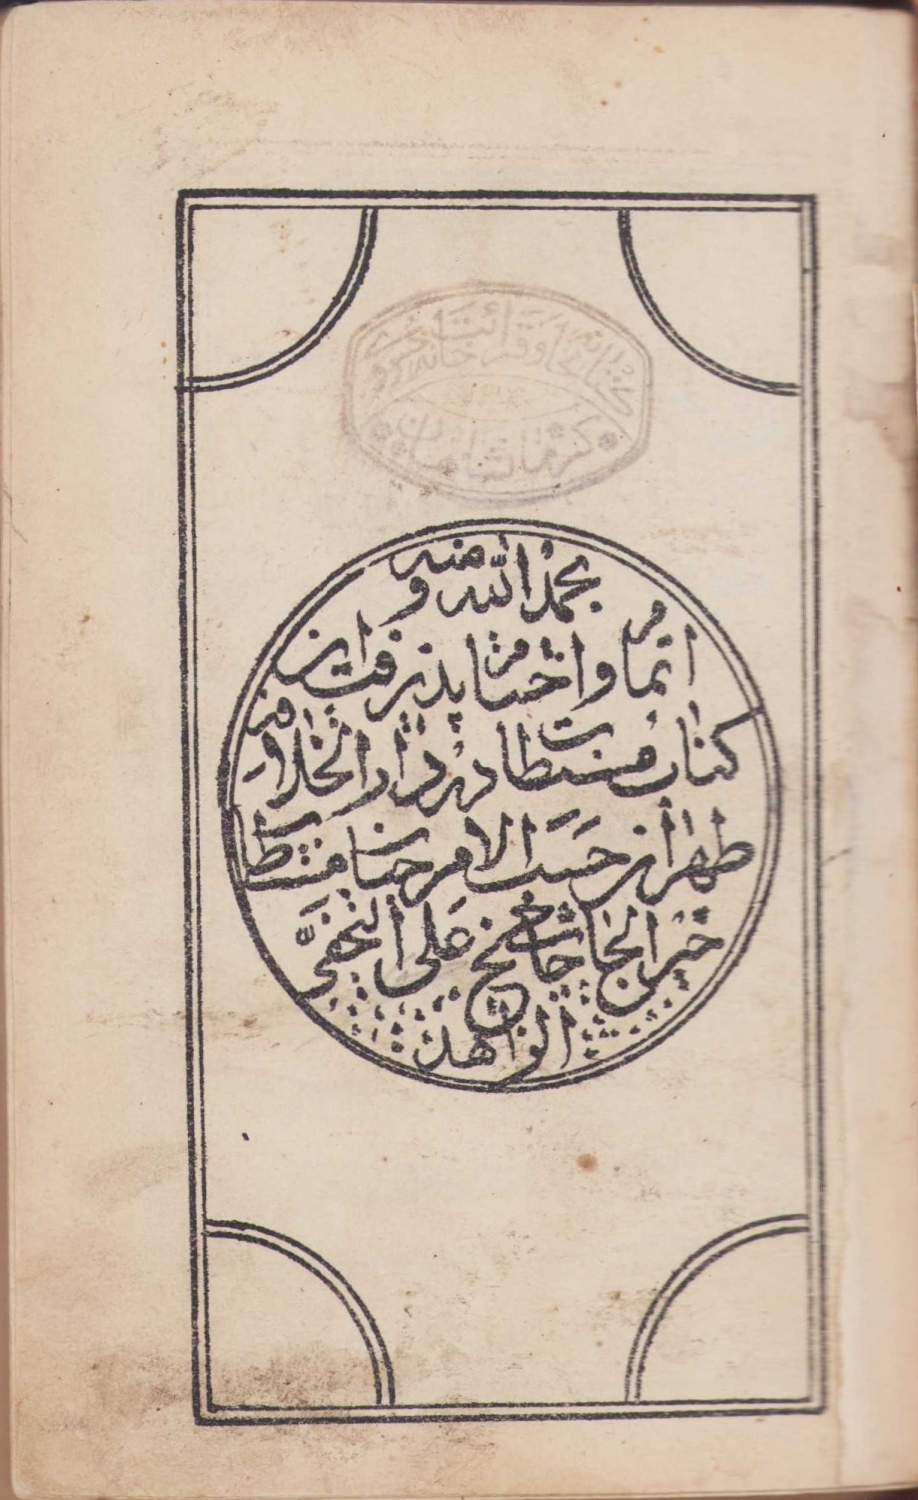 کتابخانه و قرائت خانه
کرمانشاهان
بحمد الله و منه
اتمام و اختتام پذیرفت این
کتاب مستطاب در دار الخلافه
طهران حسب الامر جناب مستطاب
خیر الحاج حاج شیخ علی النجفی
الواهد